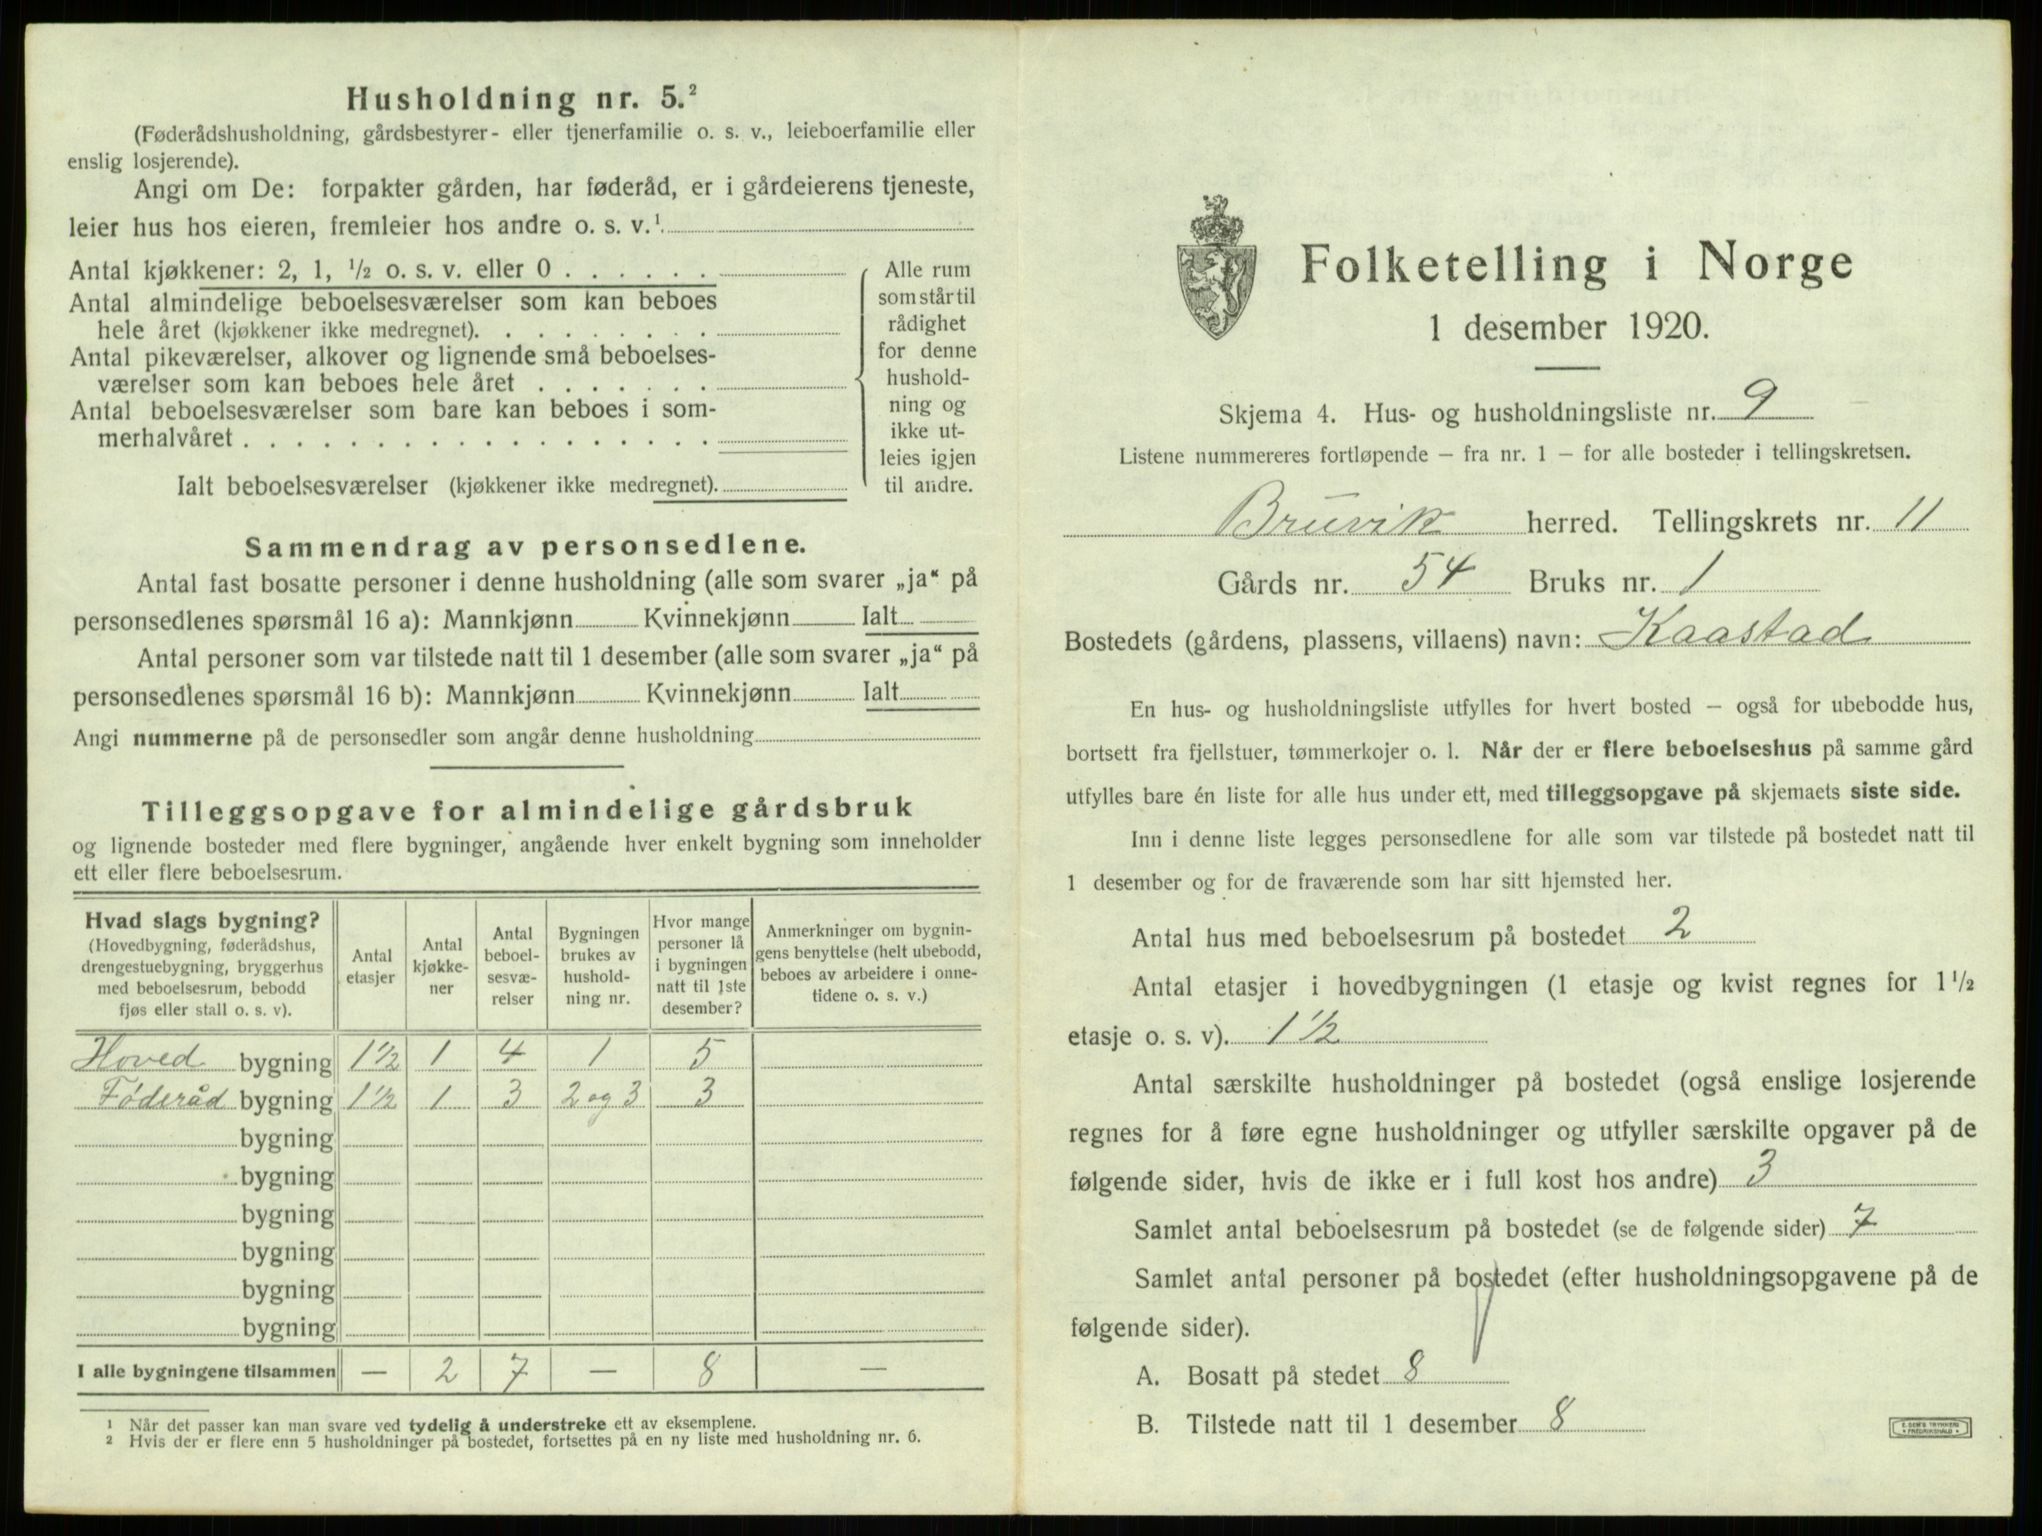 Husholdning nr. 5.²
(Føderådshusholdning, gårdsbestyrer- eller tjenerfamilie o. s. v., leieboerfamilie eller
enslig losjerende).
Angi om De: forpakter gården, har føderåd, er i gårdeierens tjeneste,
leier hus hos eieren, fremleier hos andre o. s. v.¹
Antal kjøkkener: 2, 1, ½ o. s. v. eller 0 . . . . . .
Antal almindelige beboelsesværelser som kan beboes
hele året (kjøkkener ikke medregnet). . . . . . . . .
Antal pikeværelser, alkover og lignende små beboelses-
værelser som kan beboes hele året . . . . . . .
Antal beboelsesværelser som bare kan beboes i som-
merhalvåret . . . . . . . . . . . . . . . . . .
Ialt beboelsesværelser (kjøkkener ikke medregnet).
Alle rum
som står til
rådighet
for denne
hushold-
ning og
ikke ut-
leies igjen
til andre.
Sammendrag av personsedlene.
Antal fast bosatte personer i denne husholdning (alle som svarer „ja“ på
personsedlenes spørsmål 16 a): Mannkjønn Kvinnekjønn Ialt
Antal personer som var tilstede natt til 1 desember (alle som svarer „ja“ på
personsedlenes spørsmål 16 b): Mannkjønn Kvinnekjønn Ialt
Angi nummerne på de personsedler som angår denne husholdning
Tilleggsopgave for almindelige gårdsbruk
og lignende bosteder med flere bygninger, angående hver enkelt bygning som inneholder
ett eller flere beboelsesrum.
Hvad slags bygning?
(Hovedbygning, føderådshus,
drengestuebygning, bryggerhus
med beboelsesrum, bebodd
fjøs eller stall o. s. v).
Antal
etasjer
Antal
kjøkke-
ner
Antal
beboel-
sesvæ-
relser
Bygningen
brukes av
hushold-
ning nr.
Hvor mange
personer lå
i bygningen
natt til 1ste
desember?
Anmerkninger om bygnin-
gens benyttelse (helt ubebodd,
beboes av arbeidere i onne-
tidene o. s. v.)
Hoved bygning 1½ 1 4 1 5
Føderåd bygning 1½ 1 3 2 og 3 3
bygning
bygning
bygning
bygning
bygning
bygning
I alle bygningene tilsammen — 2 7 — 8 —
¹ Når det passer kan man svare ved tydelig å understreke ett av eksemplene.
² Hvis der er flere enn 5 husholdninger på bostedet, fortsettes på en ny liste med husholdning nr. 6.
Folketelling i Norge
1 desember 1920.
Skjema 4. Hus- og husholdningsliste nr. 9
Listene nummereres fortløpende – fra nr. 1 – for alle bosteder i tellingskretsen.
Bruvik herred. Tellingskrets nr. 11
Gårds nr. 54 Bruks nr. 1
Bostedets (gårdens, plassens, villaens) navn: Kaastad
En hus- og husholdningsliste utfylles for hvert bosted – også for ubebodde hus,
bortsett fra fjellstuer, tømmerkojer o. l. Når der er flere beboelseshus på samme gård
utfylles bare én liste for alle hus under ett, med tilleggsopgave på skjemaets siste side.
Inn i denne liste legges personsedlene for alle som var tilstede på bostedet natt til
1 desember og for de fraværende som har sitt hjemsted her.
Antal hus med beboelsesrum på bostedet 2
Antal etasjer i hovedbygningen (1 etasje og kvist regnes for 1½
etasje o. s. v). 1½
Antal særskilte husholdninger på bostedet (også enslige losjerende
regnes for å føre egne husholdninger og utfyller særskilte opgaver på de
følgende sider, hvis de ikke er i full kost hos andre) 3
Samlet antal beboelsesrum på bostedet (se de følgende sider) 7
Samlet antal personer på bostedet (efter husholdningsopgavene på de
følgende sider).
A. Bosatt på stedet 8
B. Tilstede natt til 1 desember 8